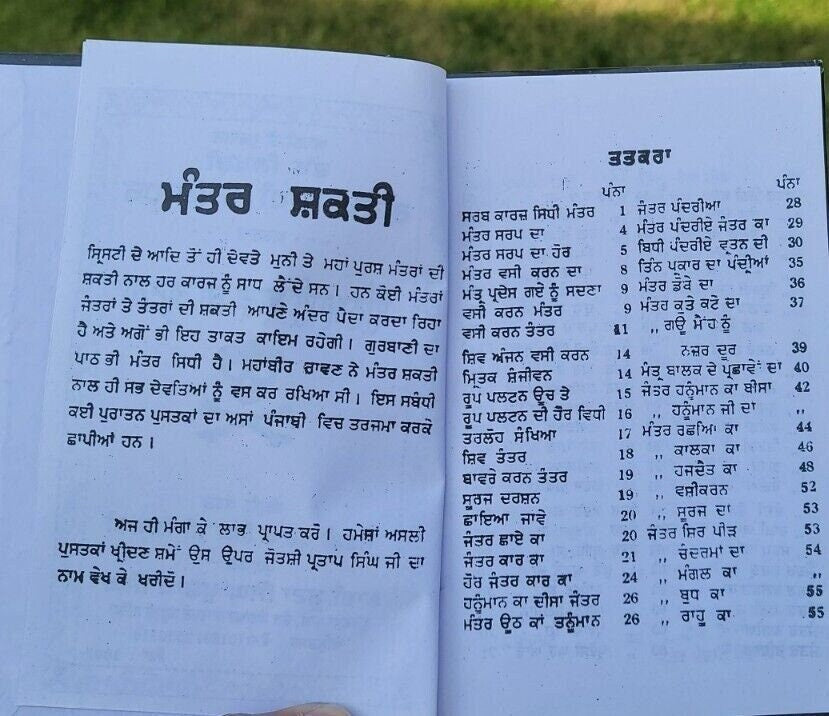 ਮੰਤਰ ਸ਼ਕਤੀ
ਸ੍ਰਿਸਟੀ ਦੇ ਆਦਿ ਤੋਂ ਹੀ ਦੇਵਤੇ ਮੁਨੀ ਤੇ ਮਹਾਂ ਪੁਰਸ਼ ਮੰਤਰਾਂ ਦੀ
ਸ਼ਕਤੀ ਨਾਲ ਹਰ ਕਾਰਜ ਨੂੰ ਸਾਧ ਲੈਂਦੇ ਸਨ। ਹਨ ਕੋਈ ਮੰਤਰਾਂ
ਜੰਤਰਾਂ ਤੇ ਤੰਤਰਾਂ ਦੀ ਸ਼ਕਤੀ ਆਪਣੇ ਅੰਦਰ ਪੈਦਾ ਕਰਦਾ ਰਿਹਾ
ਹੈ ਅਤੇ ਅਗੋਂ ਭੀ ਇਹ ਤਾਕਤ ਕਾਇਮ ਰਹੇਗੀ। ਗੁਰਬਾਣੀ ਦਾ
ਪਾਠ ਭੀ ਮੰਤਰ ਸਿਧੀ ਹੈ। ਮਹਾਂਬੀਰ ਰਾਵਣ ਨੇ ਮੰਤਰ ਸ਼ਕਤੀ
ਨਾਲ ਹੀ ਸਭ ਦੇਵਤਿਆਂ ਨੂੰ ਵਸ ਕਰ ਰਖਿਆ ਸੀ। ਇਸ ਸਬੰਧੀ
ਕਈ ਪੁਰਾਤਨ ਪੁਸਤਕਾਂ ਦਾ ਅਸਾਂ ਪੰਜਾਬੀ ਵਿਚ ਤਰਜਮਾ ਕਰਕੇ
ਛਾਪੀਆਂ ਹਨ।
ਅਜ ਹੀ ਮੰਗਾ ਕੇ ਲਾਭ ਪ੍ਰਾਪਤ ਕਰੋ। ਹਮੇਸ਼ਾਂ ਅਸਲੀ
ਪੁਸਤਕਾਂ ਖ੍ਰੀਦਣ ਸਮੇਂ ਉਸ ਉਪਰ ਜੋਤਸ਼ੀ ਪ੍ਰਤਾਪ ਸਿੰਘ ਜੀ ਦਾ
ਨਾਮ ਵੇਖ ਕੇ ਖਰੀਦੋ।
ਤਤਕਰਾ
ਪੰਨਾ
ਸਰਬ ਕਾਰਜ਼ ਸਿਧੀ ਮੰਤਰ 1
ਮੰਤਰ ਸਰਪ ਦਾ 4
ਮੰਤਰ ਸਰਪ ਦਾ ਹੋਰ 5
ਮੰਤਰ ਵਸੀ ਕਰਨ ਦਾ 8
ਮੰਤ੍ਰ ਪ੍ਰਦੇਸ ਗਏ ਨੂੰ ਸਦਣਾ 9
ਵਸੀ ਕਰਨ ਮੰਤਰ 9
ਵਸੀ ਕਰਨ ਤੰਤਰ 11
ਸ਼ਿਵ ਅੰਜਨ ਵਸੀ ਕਰਨ 14
ਮ੍ਰਿਤਕ ਸੰਜੀਵਨ 14
ਰੂਪ ਪਲਟਨ ਉਚ ਤੇ 15
ਰੂਪ ਪਲਟਨ ਦੀ ਹੋਰ ਵਿਧੀ 16
ਤਰਲੋਹ ਸੰਖਿਆ 17
ਸ਼ਿਵ ਤੰਤਰ 18
ਬਾਵਰੇ ਕਰਨ ਤੰਤਰ 19
ਸੂਰਜ ਦਰਸ਼ਨ 19
ਛਾਇਆ ਜਾਂਵੇ 20
ਜੰਤਰ ਛਾਏ ਕਾ 20
ਜੰਤਰ ਕਾਰ ਕਾ 21
ਹੋਰ ਜੰਤਰ ਕਾਰ ਕਾ 24
ਹਨੂੰਮਾਨ ਕਾ ਦੀਸਾ ਜੰਤਰ 26
ਮੰਤਰ ਉਠ ਕਾਂ ਤਨੂੰਮਾਨ 26
ਪੰਨਾ
ਜੰਤਰ ਪੰਦਰੀਆ 28
ਮੰਤਰ ਪੰਦਰੀਏ ਜੰਤਰ ਕਾ 29
ਬਿਧੀ ਪੰਦਰੀਏ ਵਤਨ ਦੀ 30
ਤਿੰਨ ਪ੍ਰਕਾਰ ਦਾ ਪੰਦ੍ਰੀਆਂ 35
ਮੰਤਰ ਡੱਬੇ ਦਾ 36
ਮੰਤਰ ਕੁਤੇ ਕਟੇ ਦਾ 37
,, ਗਊ ਮੈਂਹ ਨੂੰ
ਨਜ਼ਰ ਦੂਰ 39
ਮੰਤ੍ਰ ਬਾਲਕ ਦੇ ਪ੍ਰਛਾਵੇਂ ਦਾ 40
ਜੰਤਰ ਹਨੂੰਮਾਨ ਕਾ ਬੀਸਾ 42
,, ਹਨੂੰਮਾਨ ਜੀ ਦਾ ,,
ਮੰਤਰ ਰਛਆਿ ਕਾ 44
,, ਕਾਲਕਾ ਕਾ 46
,, ਹਜਦੈਤ ਕਾ 48
,, ਵਸ਼ੀਕਰਨ 52
,, ਸੂਰਜ ਦਾ 53
ਜੰਤਰ ਸਿਰ ਪੀੜ 53
,, ਚੰਦਰਮਾਂ ਦਾ 54
,, ਮੰਗਲ ਕਾ ,,
,, ਬੁਧ ਕਾ 55
,, ਰਾਹੂ ਕਾ 55